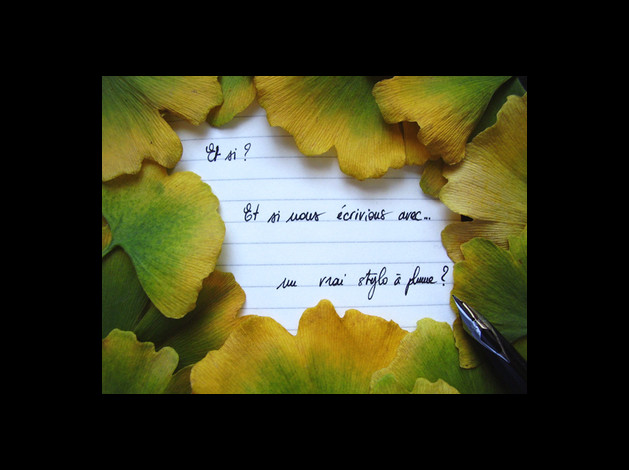 Et si ?
Et si nous écrivions avec...
un vrai stylo à plume ?